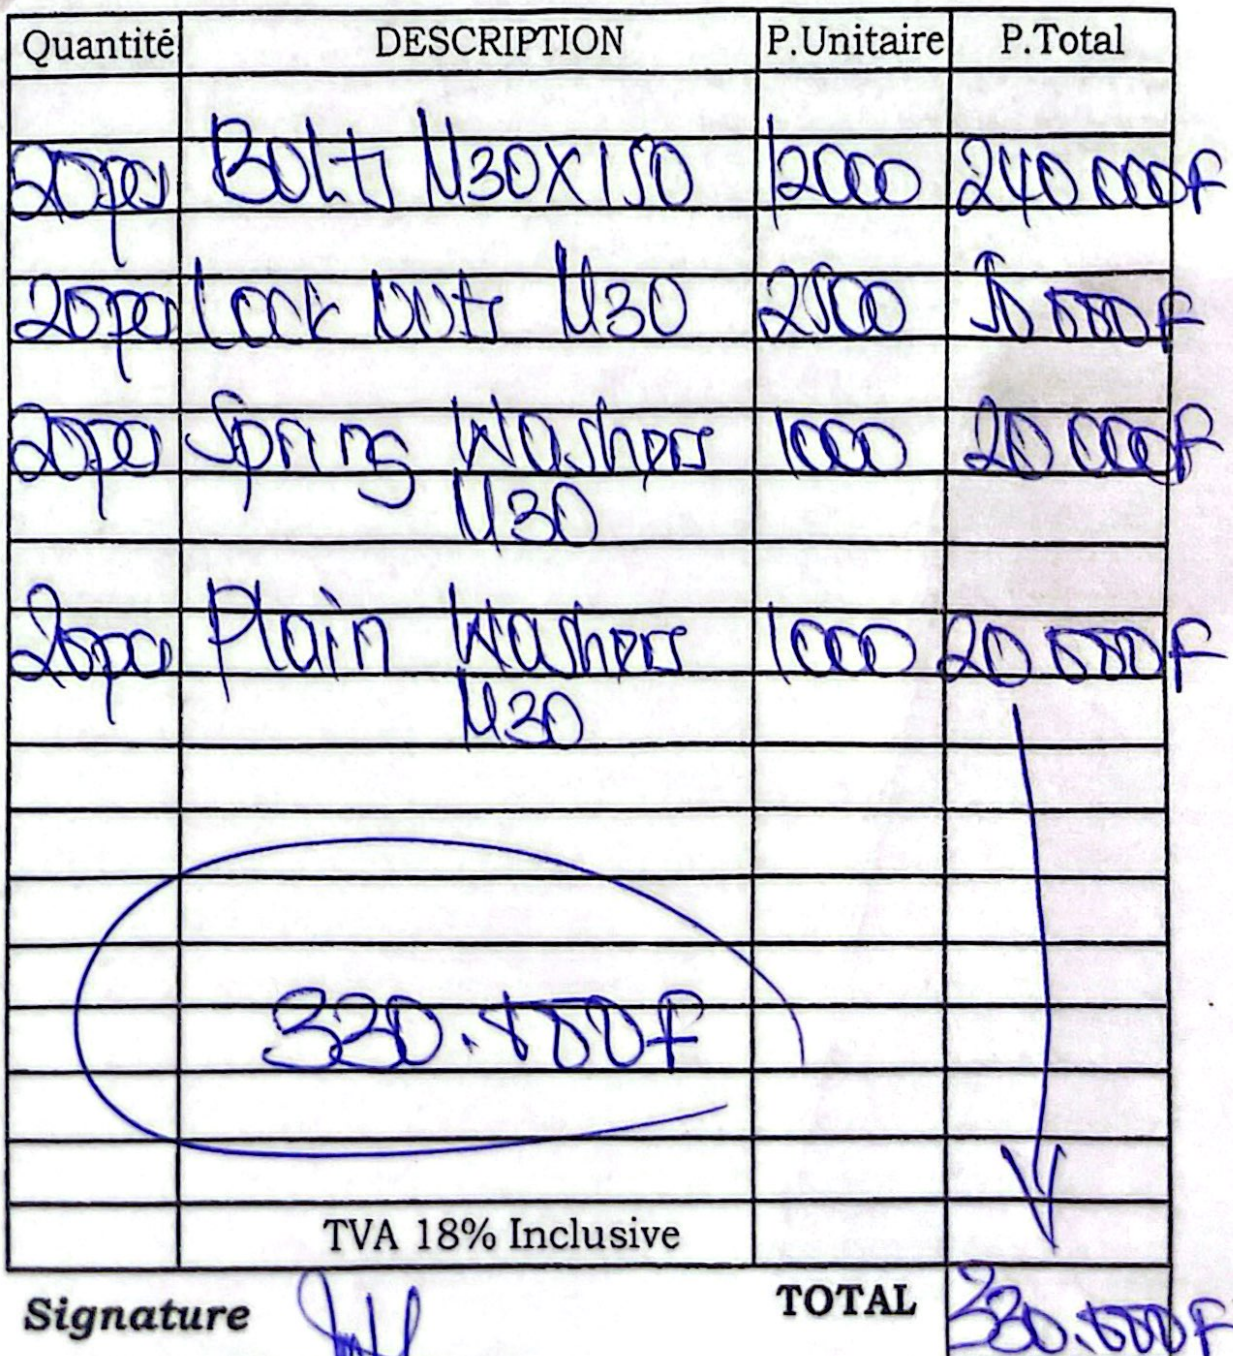 Quantité DESCRIPTION P.Unitaire P.Total
20pcs Bolts M30X150 12000 240 000F
20pcs Lock Nuts M30 2500 50 000F
20pcs Spring Washers 1000 20 000F
M30
20pcs Plain Washers 1000 20 000F
M30
330.000F
TVA 18% Inclusive
Signature TOTAL 330.000F